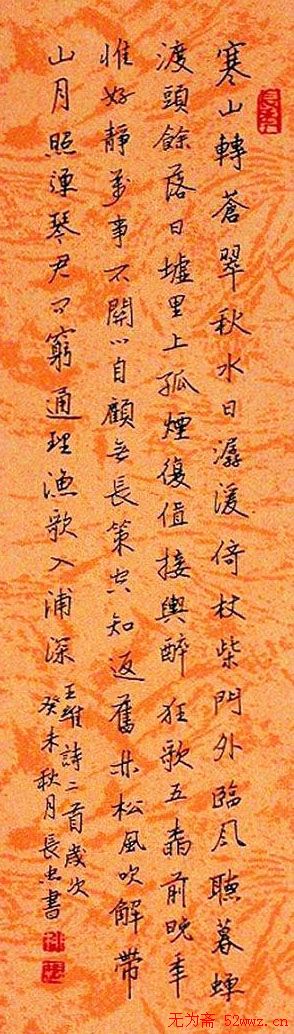 寒山轉蒼翠秋水日潺湲倚杖柴門外臨风聽暮蟬
渡頭餘落日墟里上孤煙復值接輿醉狂歌五柳前晚年
惟好靜萬事不關心自顧無長策空知返舊林松風吹解帶
山月照弹琴君问窮通理漁歌入浦深
王維詩二首歲次
癸未秋月長忠書
无为斋 52wwz.cn